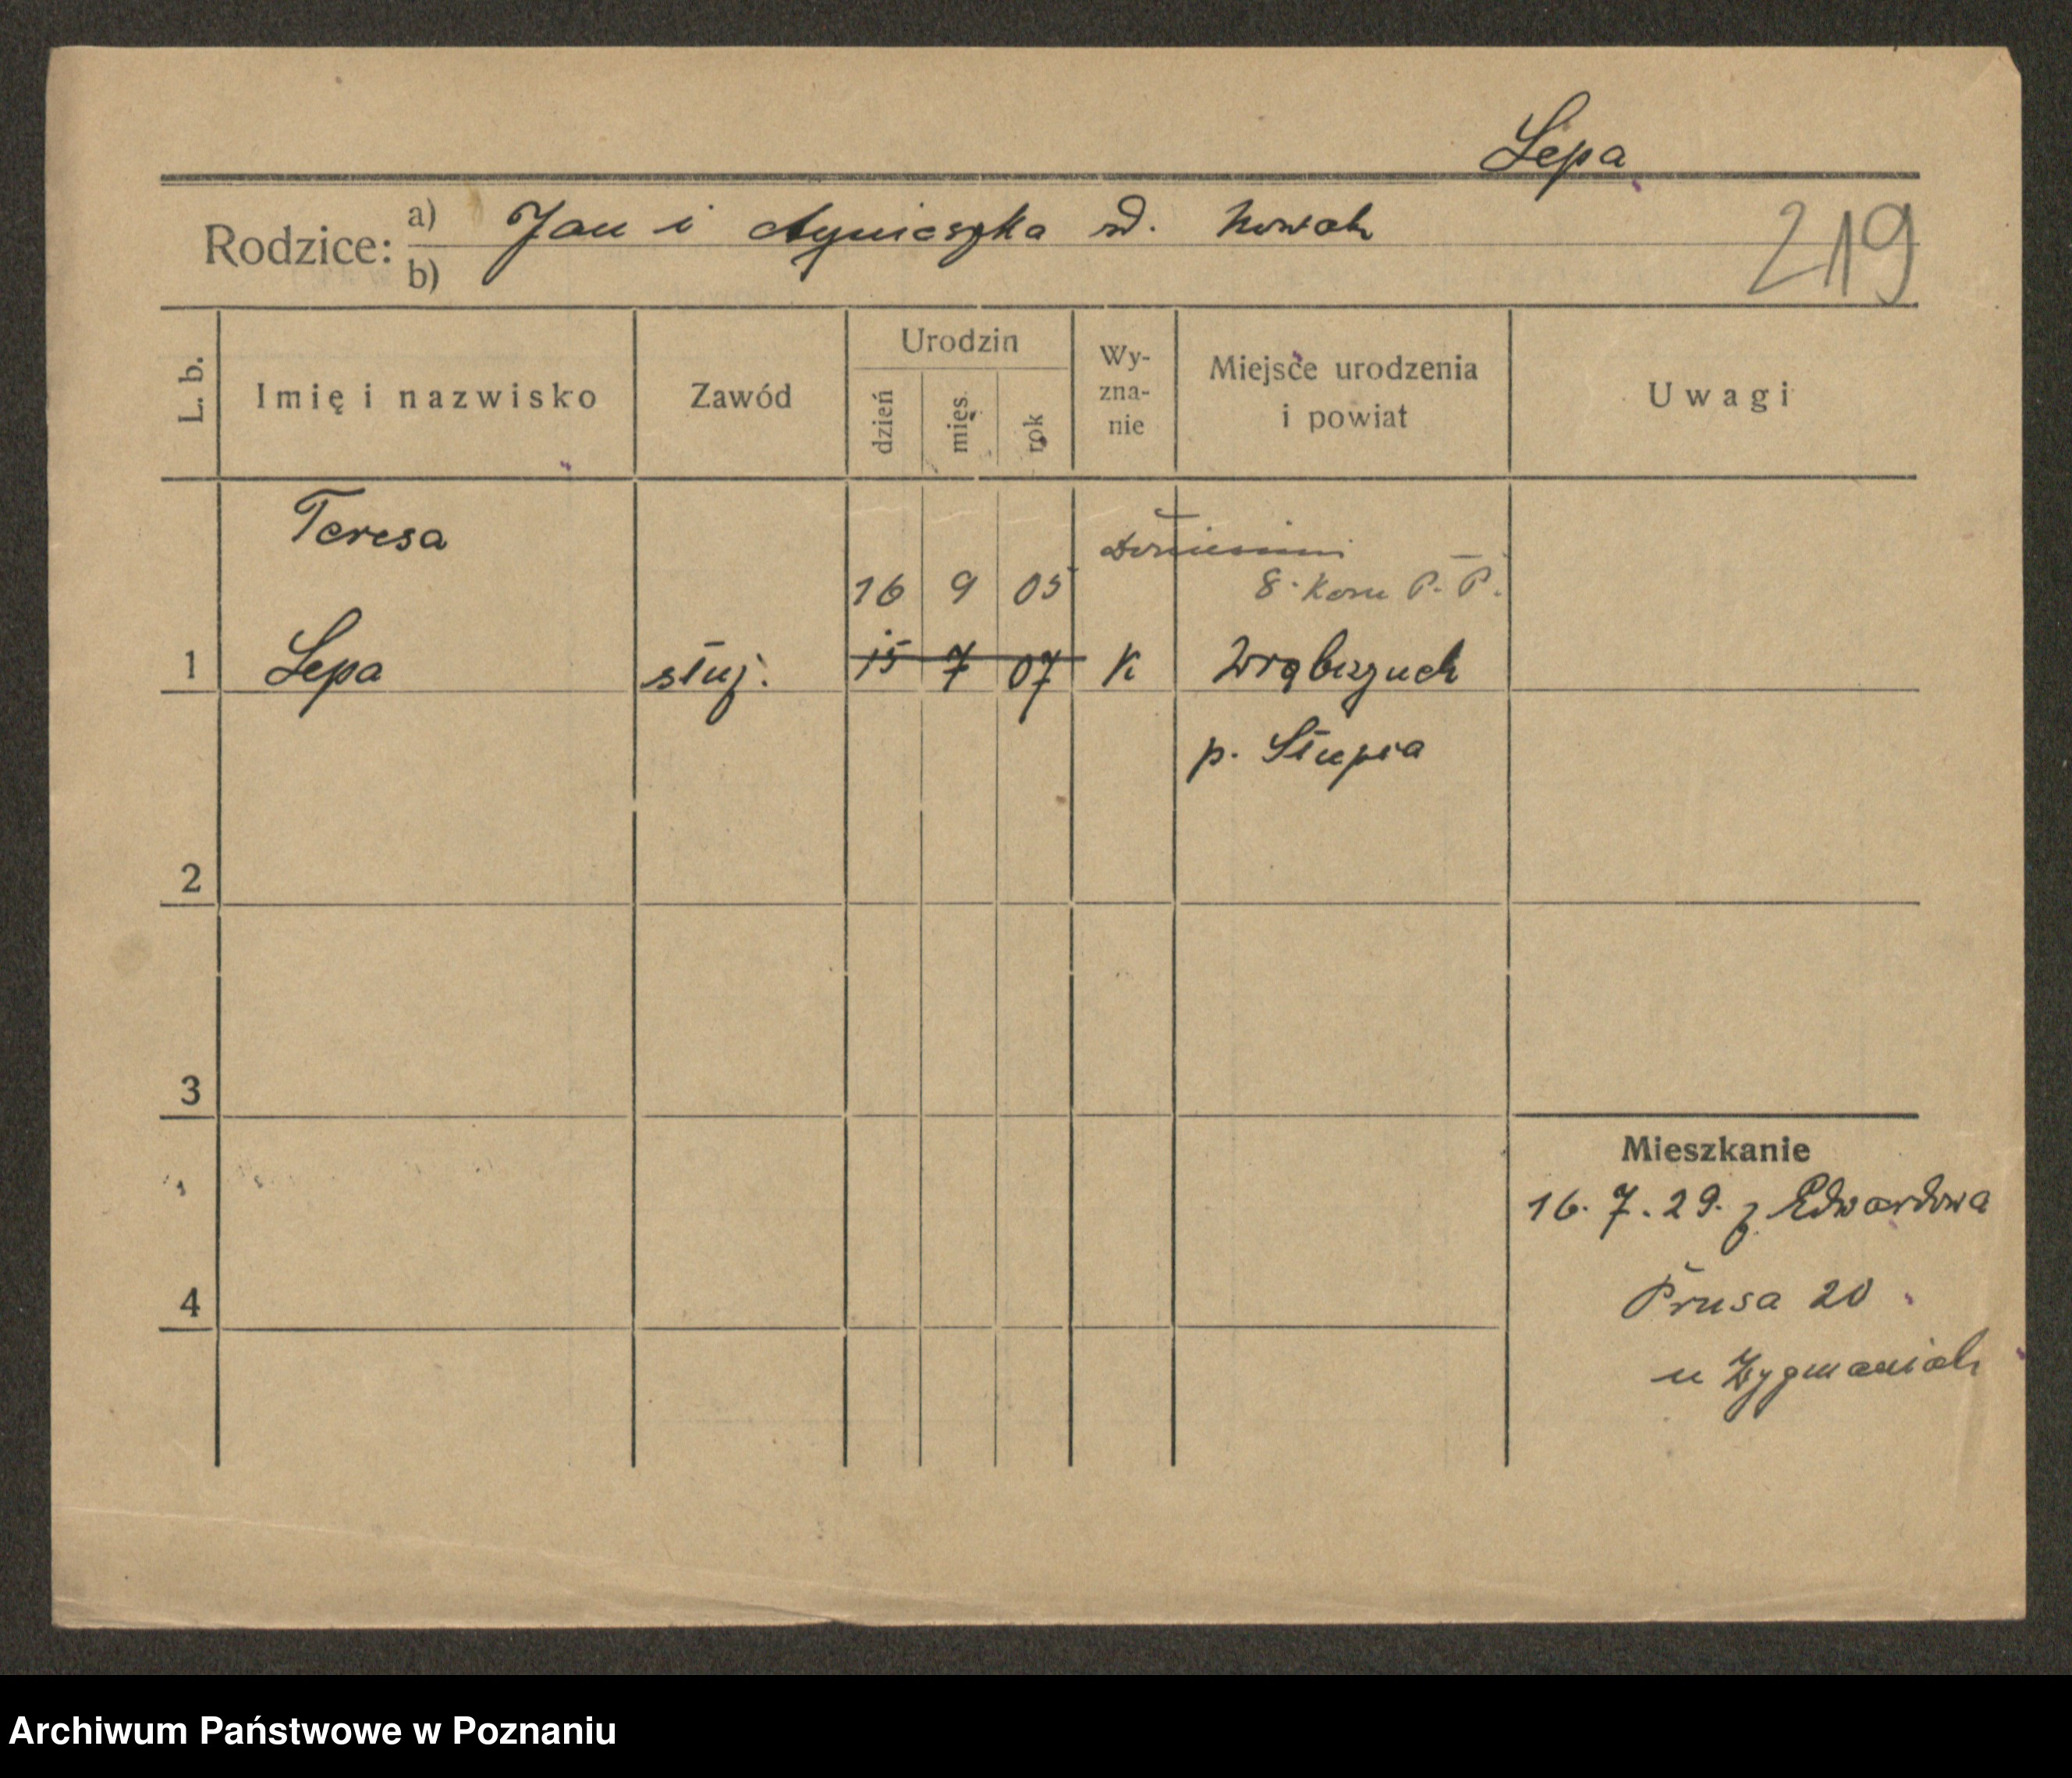 Lepa
Rodzice: a) Jan i Agnieszka rd. Nowak
b)
219
L. b.
Imię i nazwisko
Zawód
Urodzin
dzień
mięs.
rok
Wy-
zna-
nie
Miejsce urodzenia
i powiat
Uwagi
Teresa
16 9 05
8. Kom P. P.
1 Lepa służ. 15 7 07 K
p. Słupia
2
3
Mieszkanie
16. 7. 29. z Edwardowa
4 Prusa 20
u Zygmaniak
Archiwum Państwowe w Poznaniu